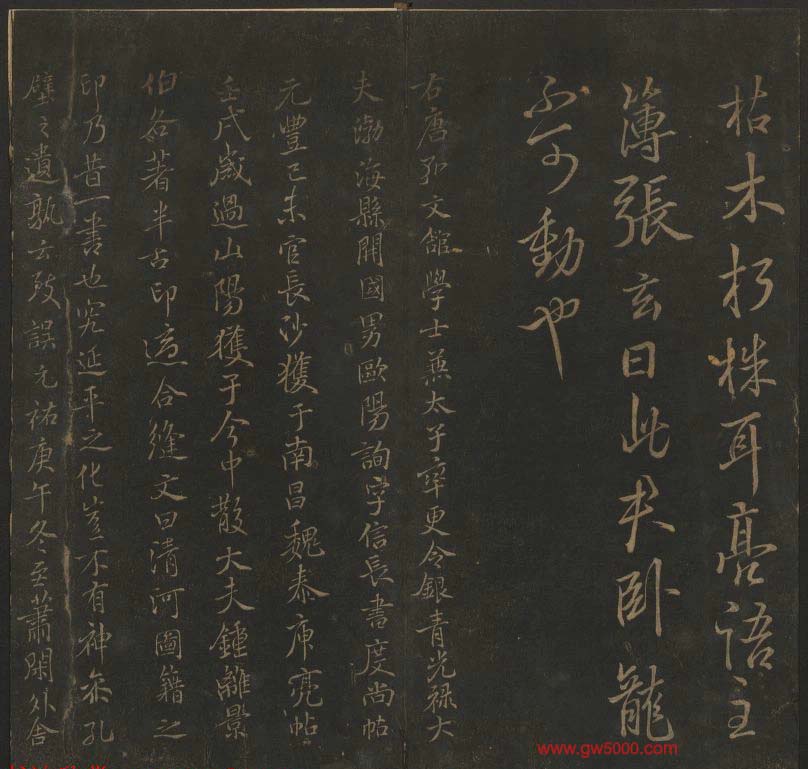 枯木朽株耳亮語主
簿張玄曰此夫卧龍
不可動也
右唐弘文館學士兼太子率更令銀青光祿大
夫渤海縣開國男歐陽詢字信長書度尚帖
元豐己未官長沙獲于南昌魏泰庾亮帖
壬戌歲過山陽獲于今中散大夫鍾離景
伯各著半古印這合縫文曰清河圖籍之
印乃昔一書也究延平之化豈不有神亦孔
壁之遺孰云致誤元祐庚午冬至蕭閑外舍
www.gw5000.com